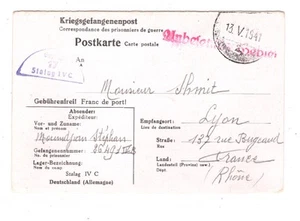 Kriegsgefangenenpost
Correspondance des prisonniers de guerre
Postkarte Carte postale
13.V.1941
Stalag IVC
An
Monsieur Shmit
Gebührenfrei! Franc de port!
Absender:
Expéditeur:
Vor- und Zuname:
Nom et prénom
Stéphan
Gefangenennummer:
No. du prisonnier
Lager-Bezeichnung:
Nom du camp
Stalag IV C
Deutschland (Allemagne)
Empfangsort: Lyon
Lieu de destination
Straße: 137 rue Bugeaud
Rue
Land: France
Landesteil (Provinz usw.)
(Rhône)